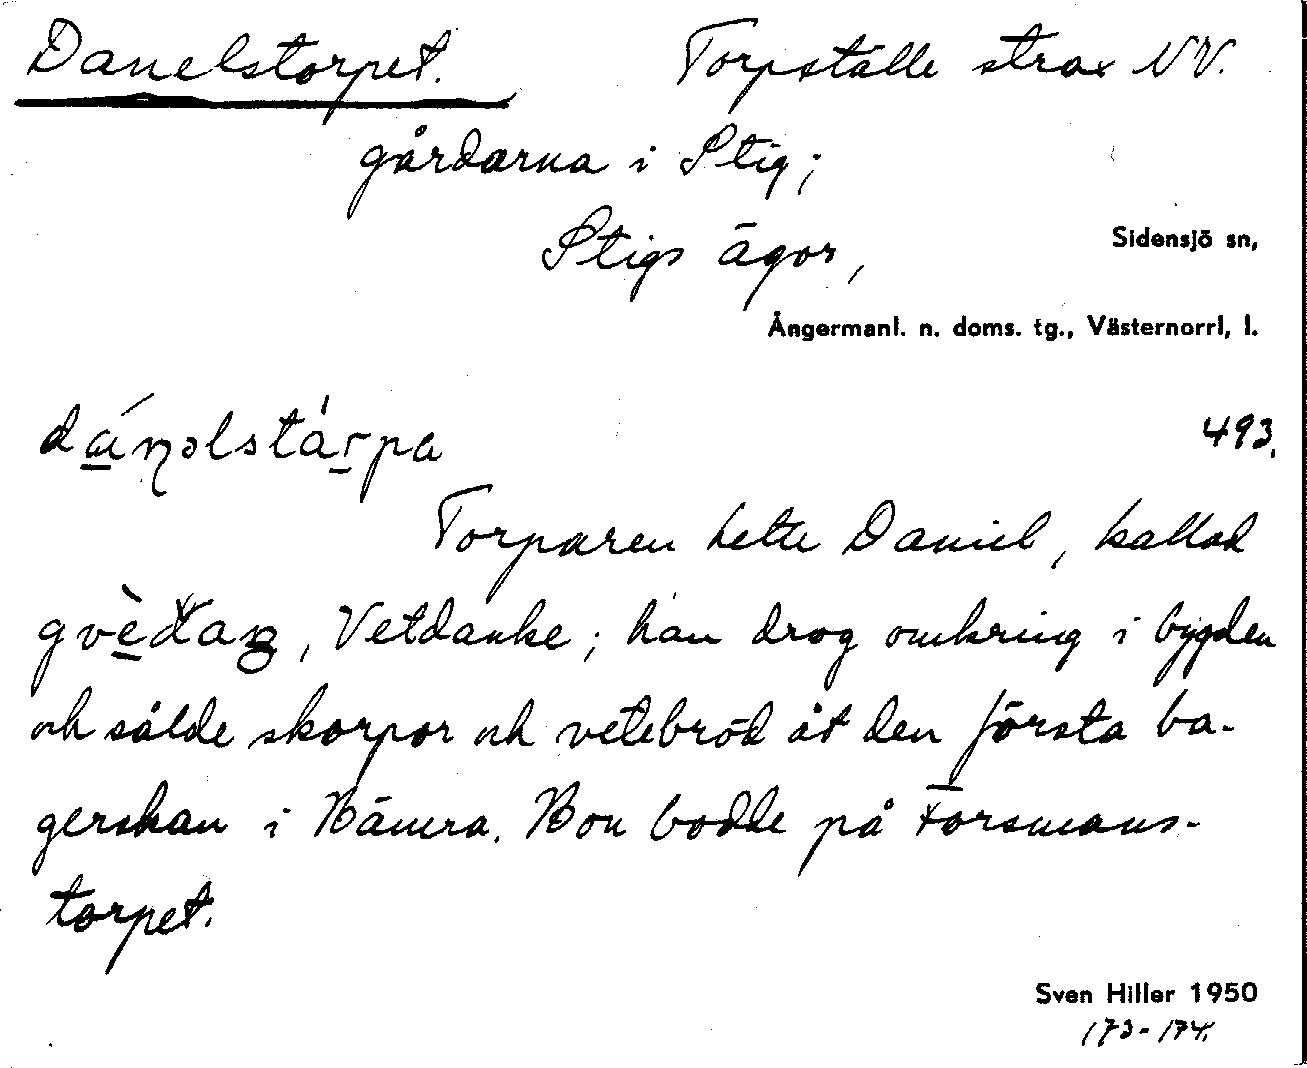 Danelstorpet. Torpställe strax NV.
gårdarna i Stig;
Stigs ägor,
Sidensjö sn,
Ångermanl. n. doms. tg., Västernorrl, l.
493.
Torparen hette Daniel, kallad
, Vetdanke; han drog omkring i bygden
och sålde skorpor och vetebröd åt den första ba-
gerskan i Bänera. Hon bodde på Forsmans-
torpet.
Sven Hiller 1950
173-174.